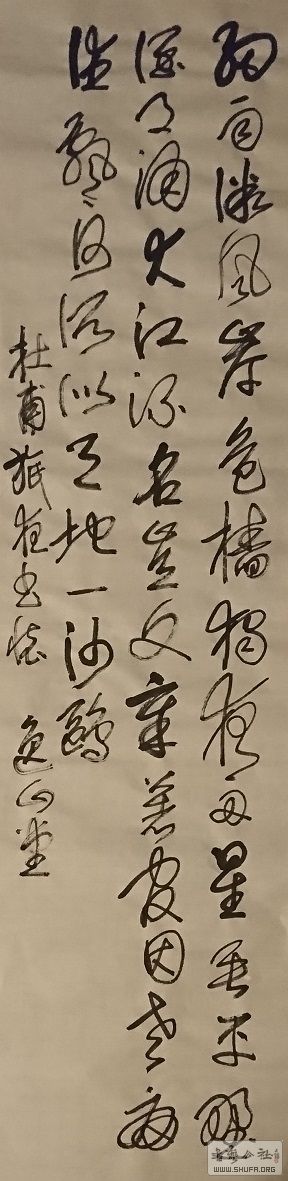 细微风岸危樯独夜舟星垂平野
阔月涌大江流名岂文章著官因老病
休飘飘何所似天地一沙鸥
杜甫旅夜书怀 逸山堂
书法公社
WWW.SHUFA.ORG